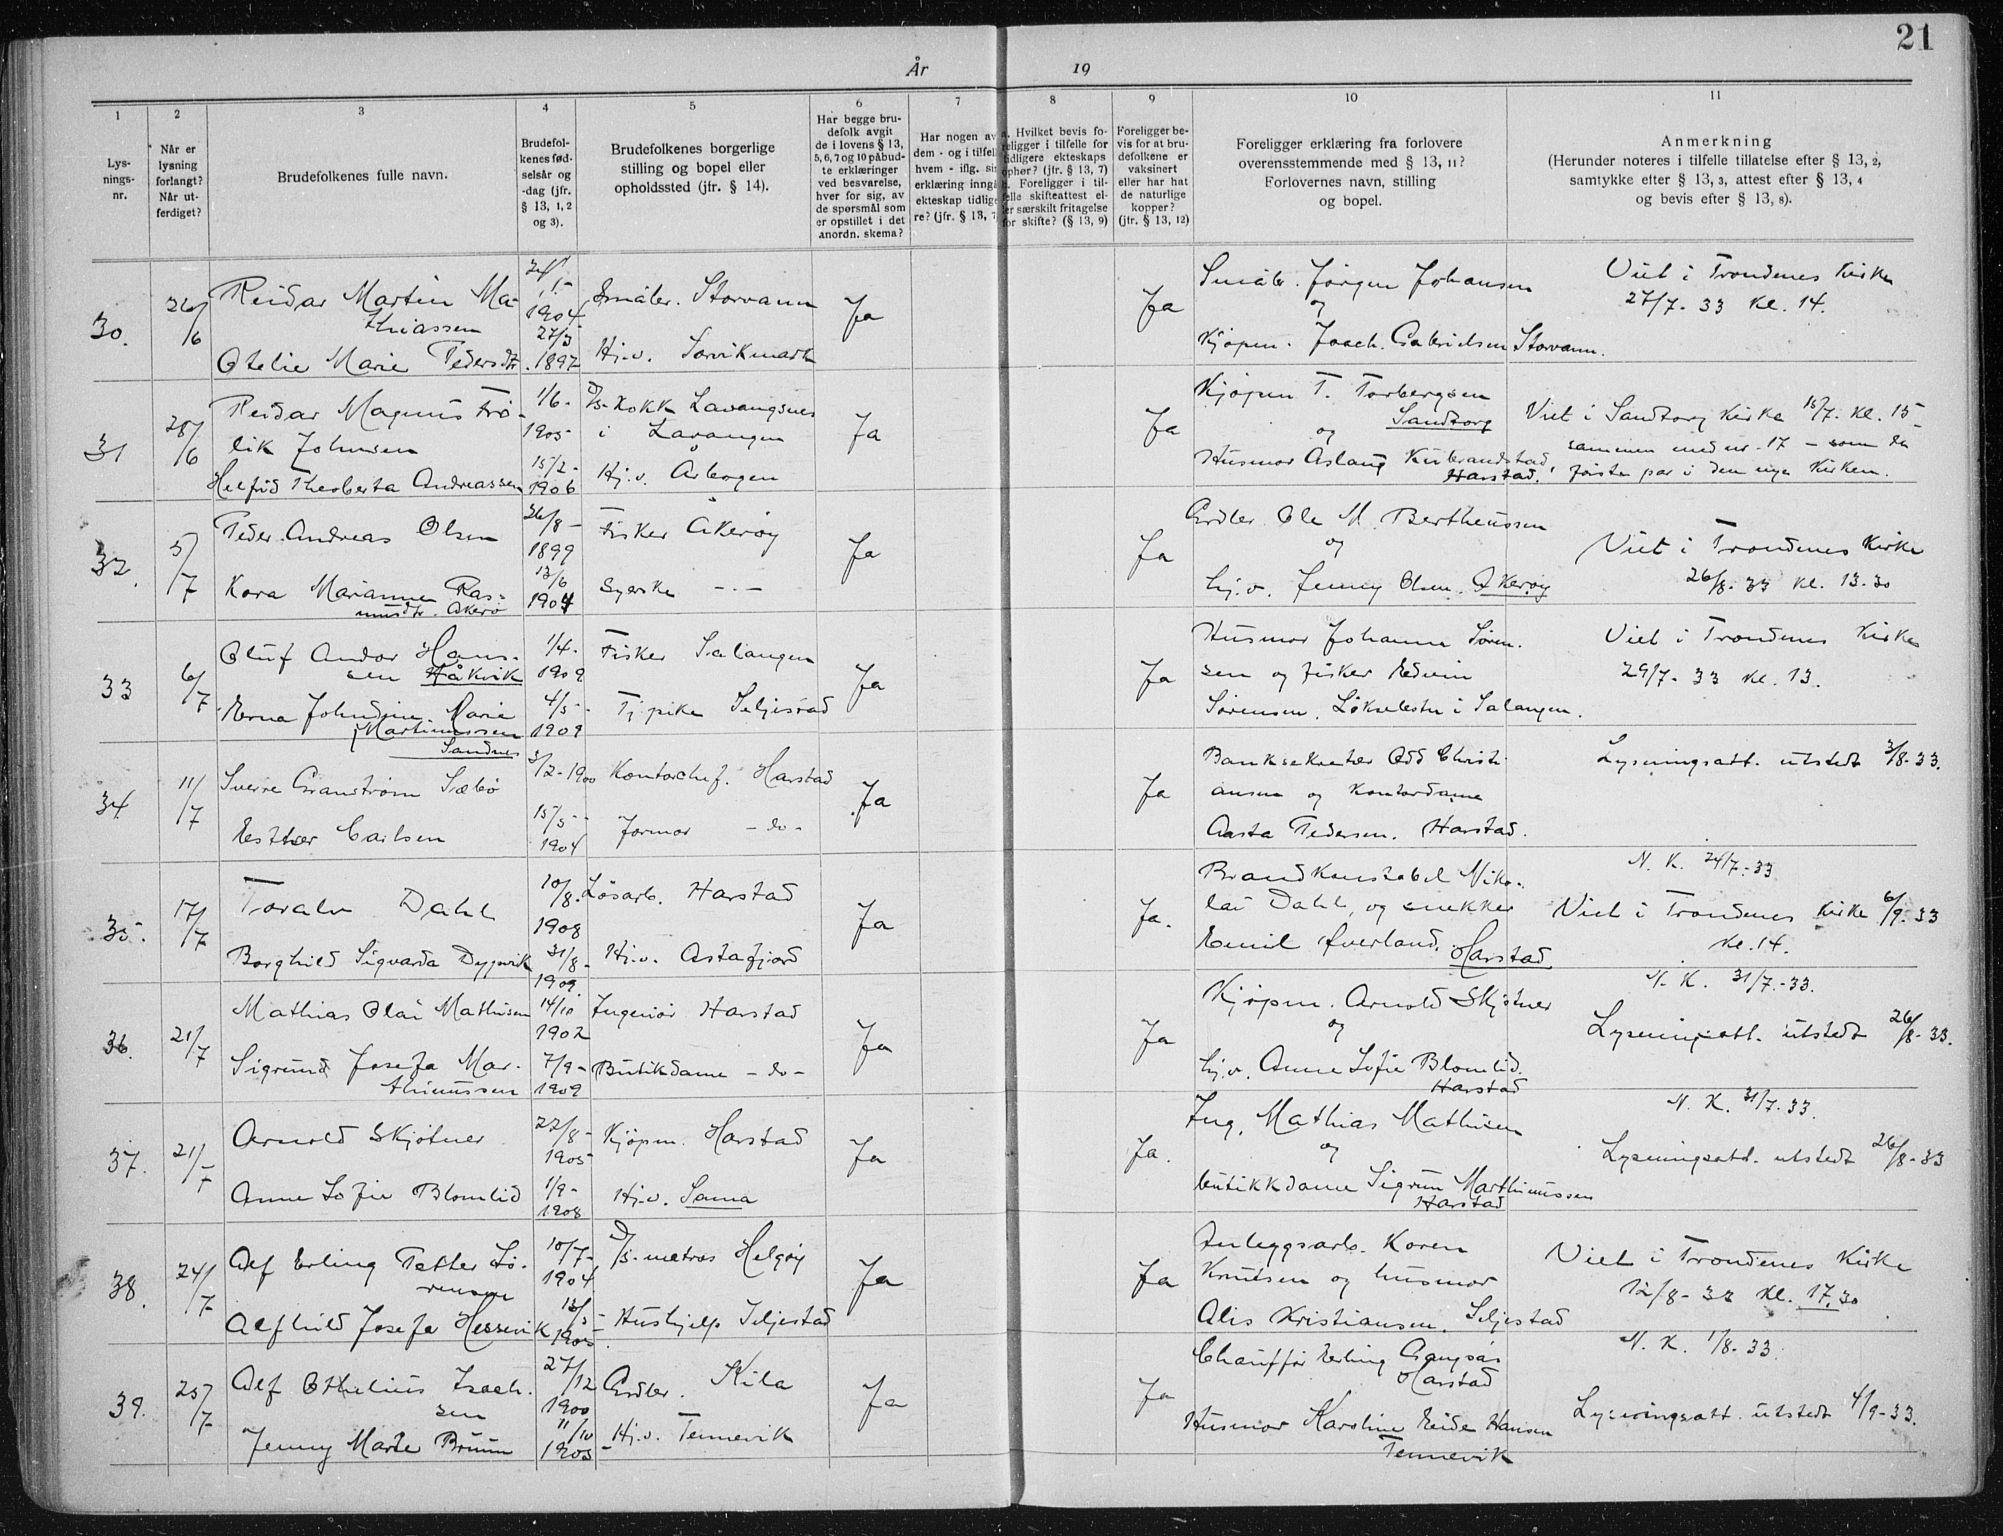 21
År 19
1 2 3 4 5 6 7 8 9 10 11
Lys-
nings-
nr.
Når er
lysning
forlangt?
Når ut-
ferdiget?
Brudefolkenes fulle navn.
Brudefol-
kenes fød-
selsår og
-dag (jfr.
§ 13, 1, 2
og 3).
Brudefolkenes borgerlige
stilling og bopel eller
opholdssted (jfr. § 14).
Har begge bru-
defolk avgit
de i lovens § 13,
5, 6, 7 og 10 påbud-
te erklæringer
ved besvarelse,
hver for sig, av
de spørsmål som
er opstillet i det
anordn. skema?
Har nogen av
dem - og i tilfelle
hvem - iflg. sin
erklæring inngå
ekteskap tidlige
re? (jfr. § 13, 7
a. Hvilket bevis fo-
religger i tilfelle for
tidligere ekteskaps
ophør? (jfr. § 13, 7)
b. Foreligger i til-
felle skifteattest el-
ler særskilt fritagelse
for skifte? (§ 13, 9)
Foreligger be-
vis for at bru-
defolkene er
vaksinert
eller har hat
de naturlige
kopper?
(jfr. § 13, 12)
Foreligger erklæring fra forlovere
overensstemmende med § 13, 11?
Forlovernes navn, stilling
og bopel.
Anmerkning
(Herunder noteres i tilfelle tillatelse efter § 13, 2,
samtykke efter § 13, 3, attest efter § 13, 4
og bevis efter § 13, 8).
30. 26/6
Reidar Martin Ma-
thiassen
Otelie Marie Pedersdtr.
1904
27/5
1897
Småbr. Storvann
Hj.v. Sørvikmark
Ja
Ja
Småbr. Jørgen Johansen
og
Kjøpm. Joach. Gabrielsen Storvann.
Viet i Trondenes Kirke
27/7-33 kl. 14.
31 28/6
Reidar Magnus Frö-
lik Johnsen
Helfrid Theoberta Andreassen
1/6-
1905
15/2-
1906
D/S-Kokk Lavangsnes
i Lavangen
Hj.v. Årbogen
Ja
Ja
Kjøpm T. Torbergsen
Sandtorg
og
Husmor Aslaug Kulbrandstad,
Harstad.
Viet i Sandtorg Kirke 15/7. kl. 15-
sammen med nr. 17 - som de
første par i den nye Kirken.
32. 5/7
Peder Andreas Olsen
Kora Marianne Ras-
musdtr. Akerø
26/8-
1899
13/6
1904
Fisker Akerøy
Syerske -"-
Ja
Ja
Grdbr. Ole M. Bertheussen
og
hj.v. Jenny Olsen. Akerøy
Viet i Trondenes Kirke
26/8-33 kl. 13.30
33 6/7
Oluf Andor Hans-
sen Håkvik
Erna Johndine Marie
Martinussen
Sandnes
1/4-
1909
4/5-
1909
Fisker Salangen
Tj.pike Seljestad
Ja
Ja
Husmor Johanne Søren-
sen og fisker Edvin
Sørensen, Løksebotn i Salangen.
Viet i Trondenes Kirke
29/7-33 kl. 13.
34 11/7
Sverre Granstrøm Sæbø
Esther Carlsen
3/2-1900
15/5-
1904
Kontorchef. Harstad
Jormor -do-
Ja
Ja
Banksekretær Odd Christi-
ansen og Kontordame
Aasta Pedersen. Harstad.
Lysningsatt. utstedt 3/8-33.
35. 17/7
Toralv Dahl
Borghild Sigvarda Dypvik
10/8-
1908
31/8-
1909
Løsarb. Harstad
Hj.v. Astafjord
Ja
Ja.
Brandkonstabel Niko-
lai Dahl, og snekker
Emil Øverland. Harstad
N. K. 24/7-33
Viet i Trondenes Kirke 6/9-33
kl. 14.
36. 21/7
Mathias Olai Mathisen
Sigrund Josefa Mar-
thinussen
14/10
1902
7/9-
1909
Ingeniør Harstad
Butikdame -do-
Ja
Ja
Kjøpm. Arnold Skjøtner
og
hj.v. Anne Sofie Blomlid.
Harstad
N. K. 31/7-33.
Lysningsatt. utstedt 26/8-33.
37. 21/7
Arnold Skjøtner
Anne Sofie Blomlid
22/8-
1905
1/9-
1908
Kjøpm. Harstad
Hj.v. Sama
Ja
Ja.
Ing. Mathias Mathisen
og
butikkdame Sigrun Marthinussen
Harstad
N. K. 31/7-33.
Lysningsatt. utstedt 26/8-33
38. 24/7
Alf Erling Petter Sø-
rensen
Alfhild Josefa Hessevik
10/7-
1904
13/5-
1905
D/S-matros Helgøy
Hushjelp Seljestad
Ja
Ja
Anleggsarb. Koren
Knutsen og husmor
Alis Kristiansen. Seljestad
Viet i Trondenes Kirke
12/8-33 kl. 17.30
39. 25/7
Alf Othelius Isach-
sen
Jenny Marie Bruun
27/12
1900
11/10
1905
Grdbr. Kila
Hj.v. Tennevik
Ja
Ja
Chauffør Erling Gangsås
Harstad
Husmor Karoline Eide Hansen
Tennevik
N. K. 1/8-33.
Lysningsatt. utstedt 4/9-33.